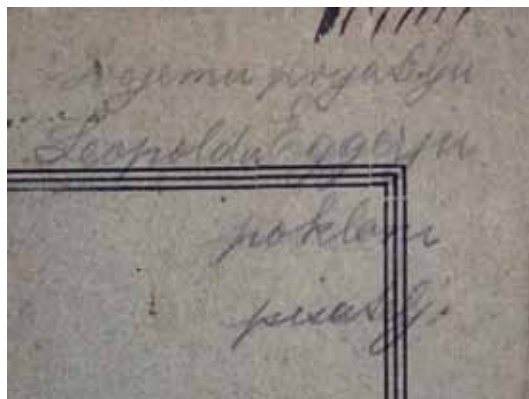 Svojemu prijatelju
Leopoldu Eggerju
pokloni
pisatelj.